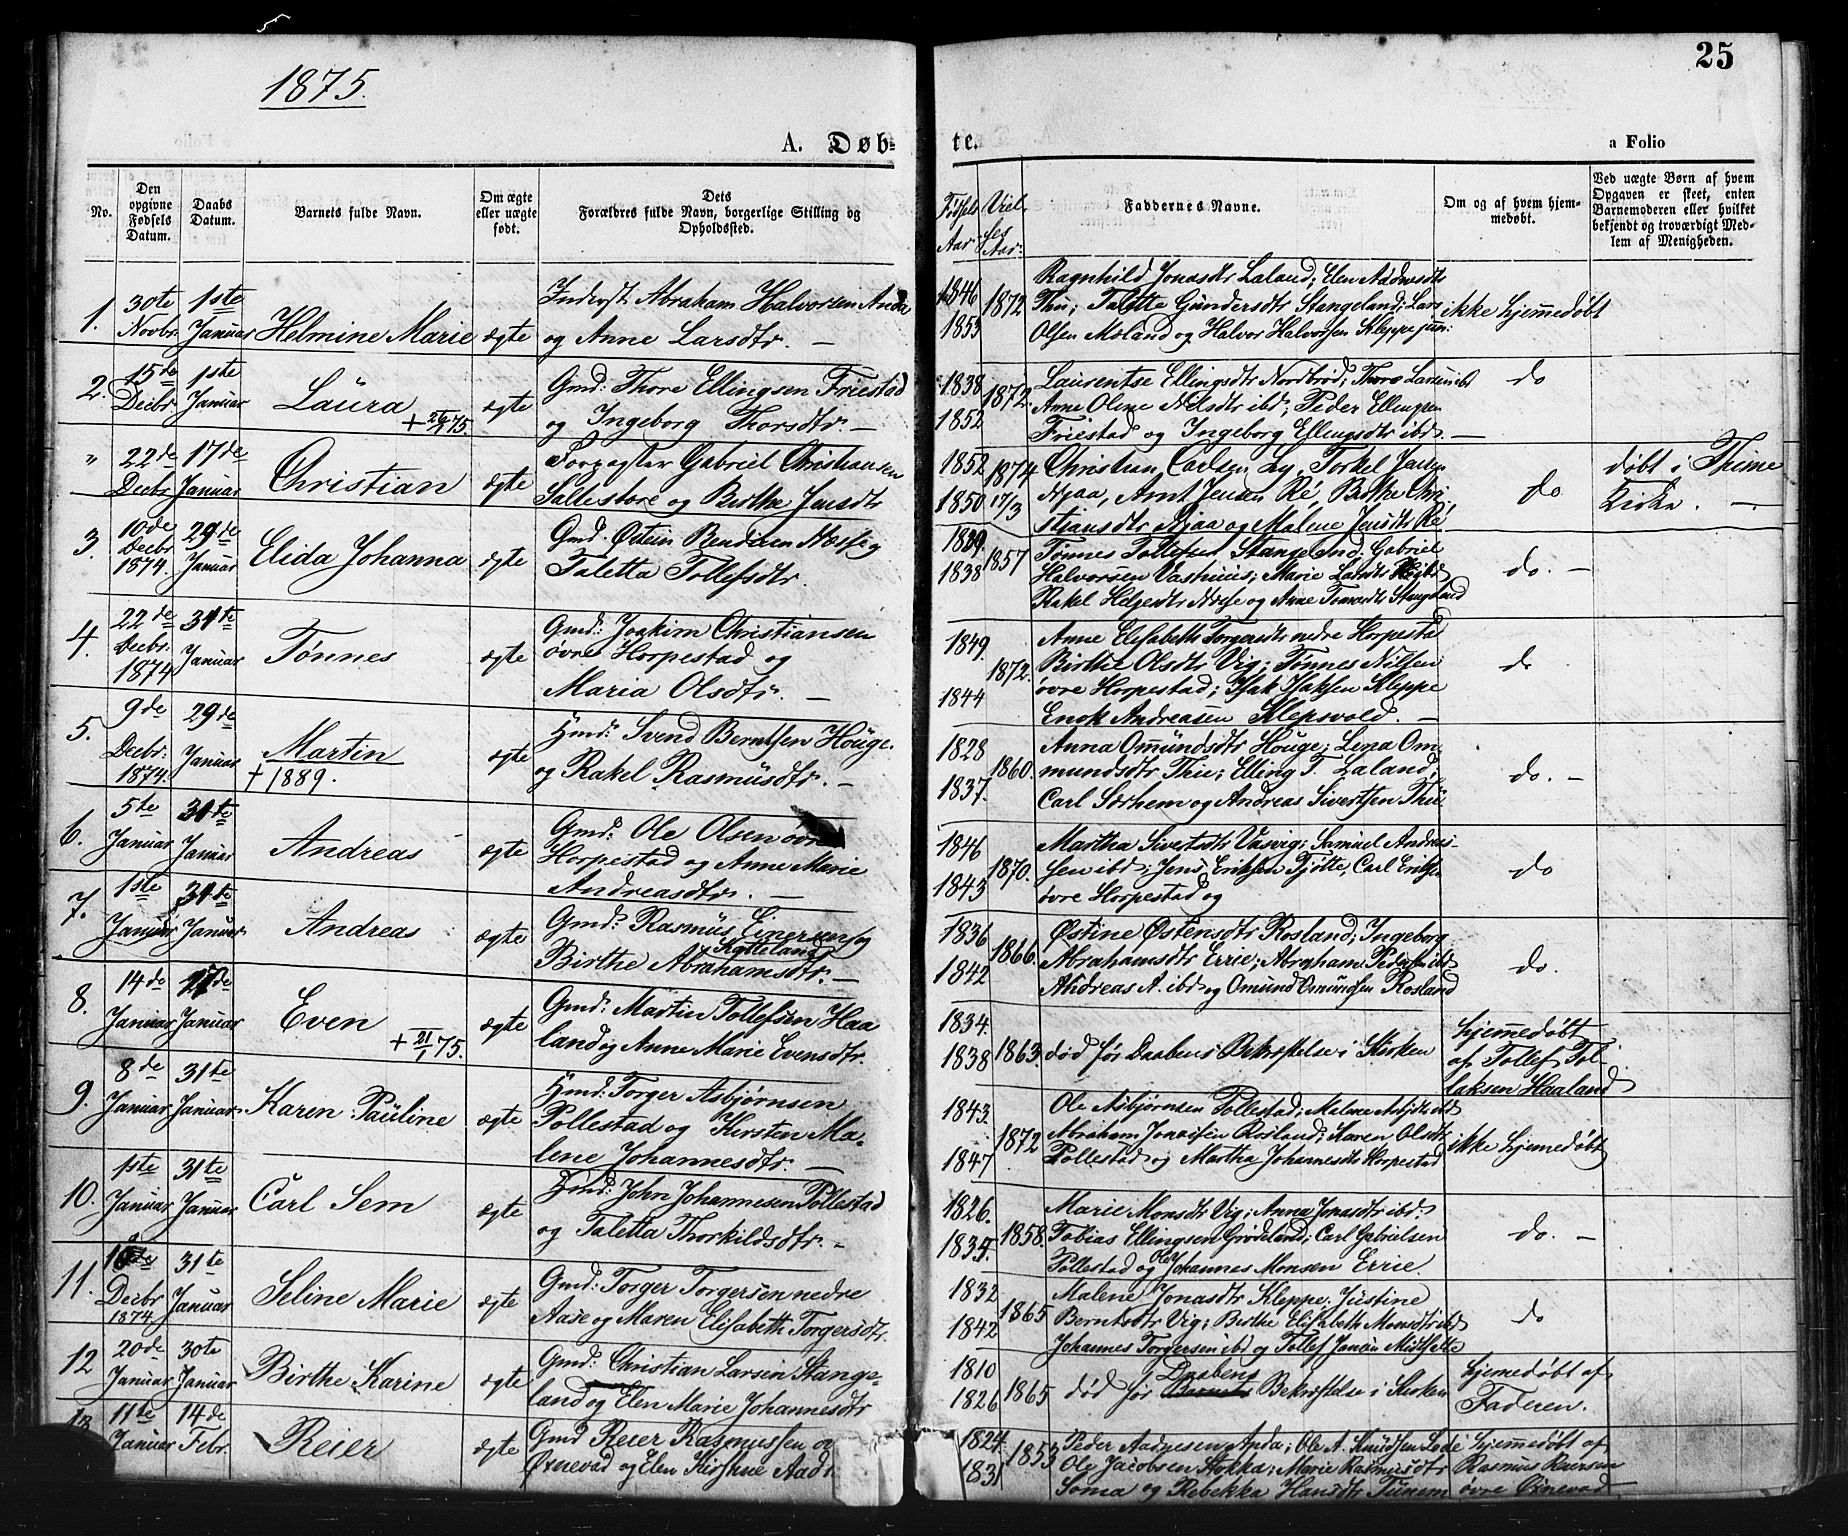 1875.
25
A. Døb-
te.
a Folio
No.
Den opgivne Fødsels Datum.
Daabs Datum.
Barnets fulde Navn.
Om ægte eller uægte født.
Dets Forældres fulde Navn, borgerlige Stilling og Opholdssted.
Fødsels Aar
Viel-ses Aar.
Faddernes Navne.
Om og af hvem hjem-medøbt.
Ved uægte Børn af hvem Opgaven er skeet, enten Barnemoderen eller hvilket bekjendt og troværdigt Med-lem af Menigheden.
1. 30te Novbr. 1ste Januar Helmine Marie ægte Abraham Halvorsen Anda
og Anne Larsdtr. —
1846 1853 1872 Ragnhild Jonasdtr Laland; Elen Aadnesdtr
Thu; Talette Gundersdtr Stangeland; Lars
Olsen Moland og Halvor Halvorsen Kleppe jun:
ikke hjemmedøbt
2. 15de Decbr. 1ste Januar Laura + 26/1 75. ægte Gmd: Thore Ellingsen Friestad
og Ingeborg Thorsdtr. —
1838 1852 1872. Laurentse Ellingsdtr Nordbrød; Thore Larsen ibd
Anne Olene Nilsdtr ibd; Peder Ellingsen
Friestad og Ingeborg Ellingsdtr ibd. —
do
" 22de Decbr 17de Januar Christian ægte Forpagter Gabriel Christiansen
Saltestøre og Berthe Jensdtr
1852 1850 1874 17/3 Christian Carlsen Ly, Torkel Jensen
Njaa, Arnt Jensen Ré, Birthe Chri-
stiansdtr Njaa og Malene Jensdtr Ré,
do
døbt i Thime
Kirke. —
3. 10de Decbr 1874. 29de Januar Elida Johanna ægte Gmd. Østein Bendixen Næsse og
Taletta Tollefsdtr.
1829. 1838 1857 Tønnes Tollefsen Stangeland; Gabriel
Halvorsen Vashuus; Marie Larsdtr
Rakel Helgesdtr Næsse og Anne Stangeland
do. —
4. 22de Decbr. 1874 31te Januar Tønnes ægte Gmd: Joakim Christiansen
øvre Horpestad og
Maria Olsdtr. —
1849. 1844 1872. Anne Elisabeth Torgersdtr nedre Horpestad
Birthe Olsdtr Vig; Tønnes Nilsen
øvre Horpestad; Isak Isaksen Kleppe
Enok Andreasen Klepsvold. —
do
5. 9de Decbr. 1874. 29de Januar Martin + 1889. ægte Hmd: Svend Berntsen Houge.
og Rakel Rasmusdtr. —
1828 1837. 1860. Anna Ommundsdtr Houge; Lena Om-
mundsdtr Thu; Elling T. Laland;
Carl Sørhem og Andreas Sivertsen Thu
do. —
6. 5te Januar 31te Januar Andreas ægte Gmd: Ole Olsen øvre
Horpestad og Anne Marie
Andreasdtr. —
1846 1843 1870. Martha Sivertsdtr Vasvig; Samuel Andreas-
sen ibd; Jens Eriksen Tjøtte, Carl Eriksen
øvre Horpestad og
do
7. 1ste Januar 31te Januar Andreas ægte Gmd: Rasmus Einersen
Kalleland og
Birthe Abrahamsdtr. —
1836 1842 1866. Østine Østensdtr Rosland; Ingeborg
Abrahamsdtr Errie; Abraham Pedersen ibd
Andreas A. ibd og Omund Omundsen Rosland
do.
8. 14de Januar Januar Even + 21/1 75. ægte Gmd: Martin Tollefsen Haa
land og Anne Marie Evensdtr.
1834. 1838 1863. død før Daabens Bekræftelse i Kirken
hjemedøbt
af Tollef Tol-
laksen Haaland
9. 8de Januar 31te Januar Karen Pauline ægte Hmd: Torger Asbjørnsen
Pollestad og Kirsten Ma-
lene Johannesdtr. —
1843. 1847 1872 Ole Asbjørnsen Pollestad; Malene ibd
Abraham Jonassen Rosland; Karen Olsdtr
Pollestad og Martha Johannesdtr Horpestad
ikke hjemedøbt
10. 1ste Januar 31te Januar Carl Sem ægte Hmd: John Johannesen Pollestad
og Taletta Thorkildsdtr. —
1826. 1835. 1858. Marie Monsdtr Vig; Anna Jonasdtr ibd.
Tobias Ellingsen Grødeland; Carl Gabrielsen
Pollestad og Ole Johannes Monsen Errie.
do. —
11. Decbr 1874 31te Januar Seline Marie ægte Gmd: Torger Torgersen nedre
Aase og Maren Elisabeth Torgersdtr.
1832 1842 1865 Malene Jonasdtr Kleppe; Justine
Berntsdtr Vig; Birthe Elisabeth Monsdtr ibd
Johannes Torgersen ibd og Tollef Jonsen
do
12 20de Januar 30te Januar Birthe Karine ægte Gmd: Christian Larsen Stange-
land og Elen Marie Johannesdtr
1810 1826 1865 død før Daabens Bekræftelse i Kirken
hjemedøbt af
Faderen.
13 11te Januar 14de Febr. Reier ægte Gmd Reier Rasmussen
Ørnevad og Elen
1824. 1831 1853 Peder Aadnesen Anda; Ole A. Knudsen Lode
Ole Jacobsen Stokka; Marie Rasmusdtr
Soma og Rebekka Hansdtr Tunem
hjemmedøbt af
Rasmus Reiersen
øvre Ørnevad